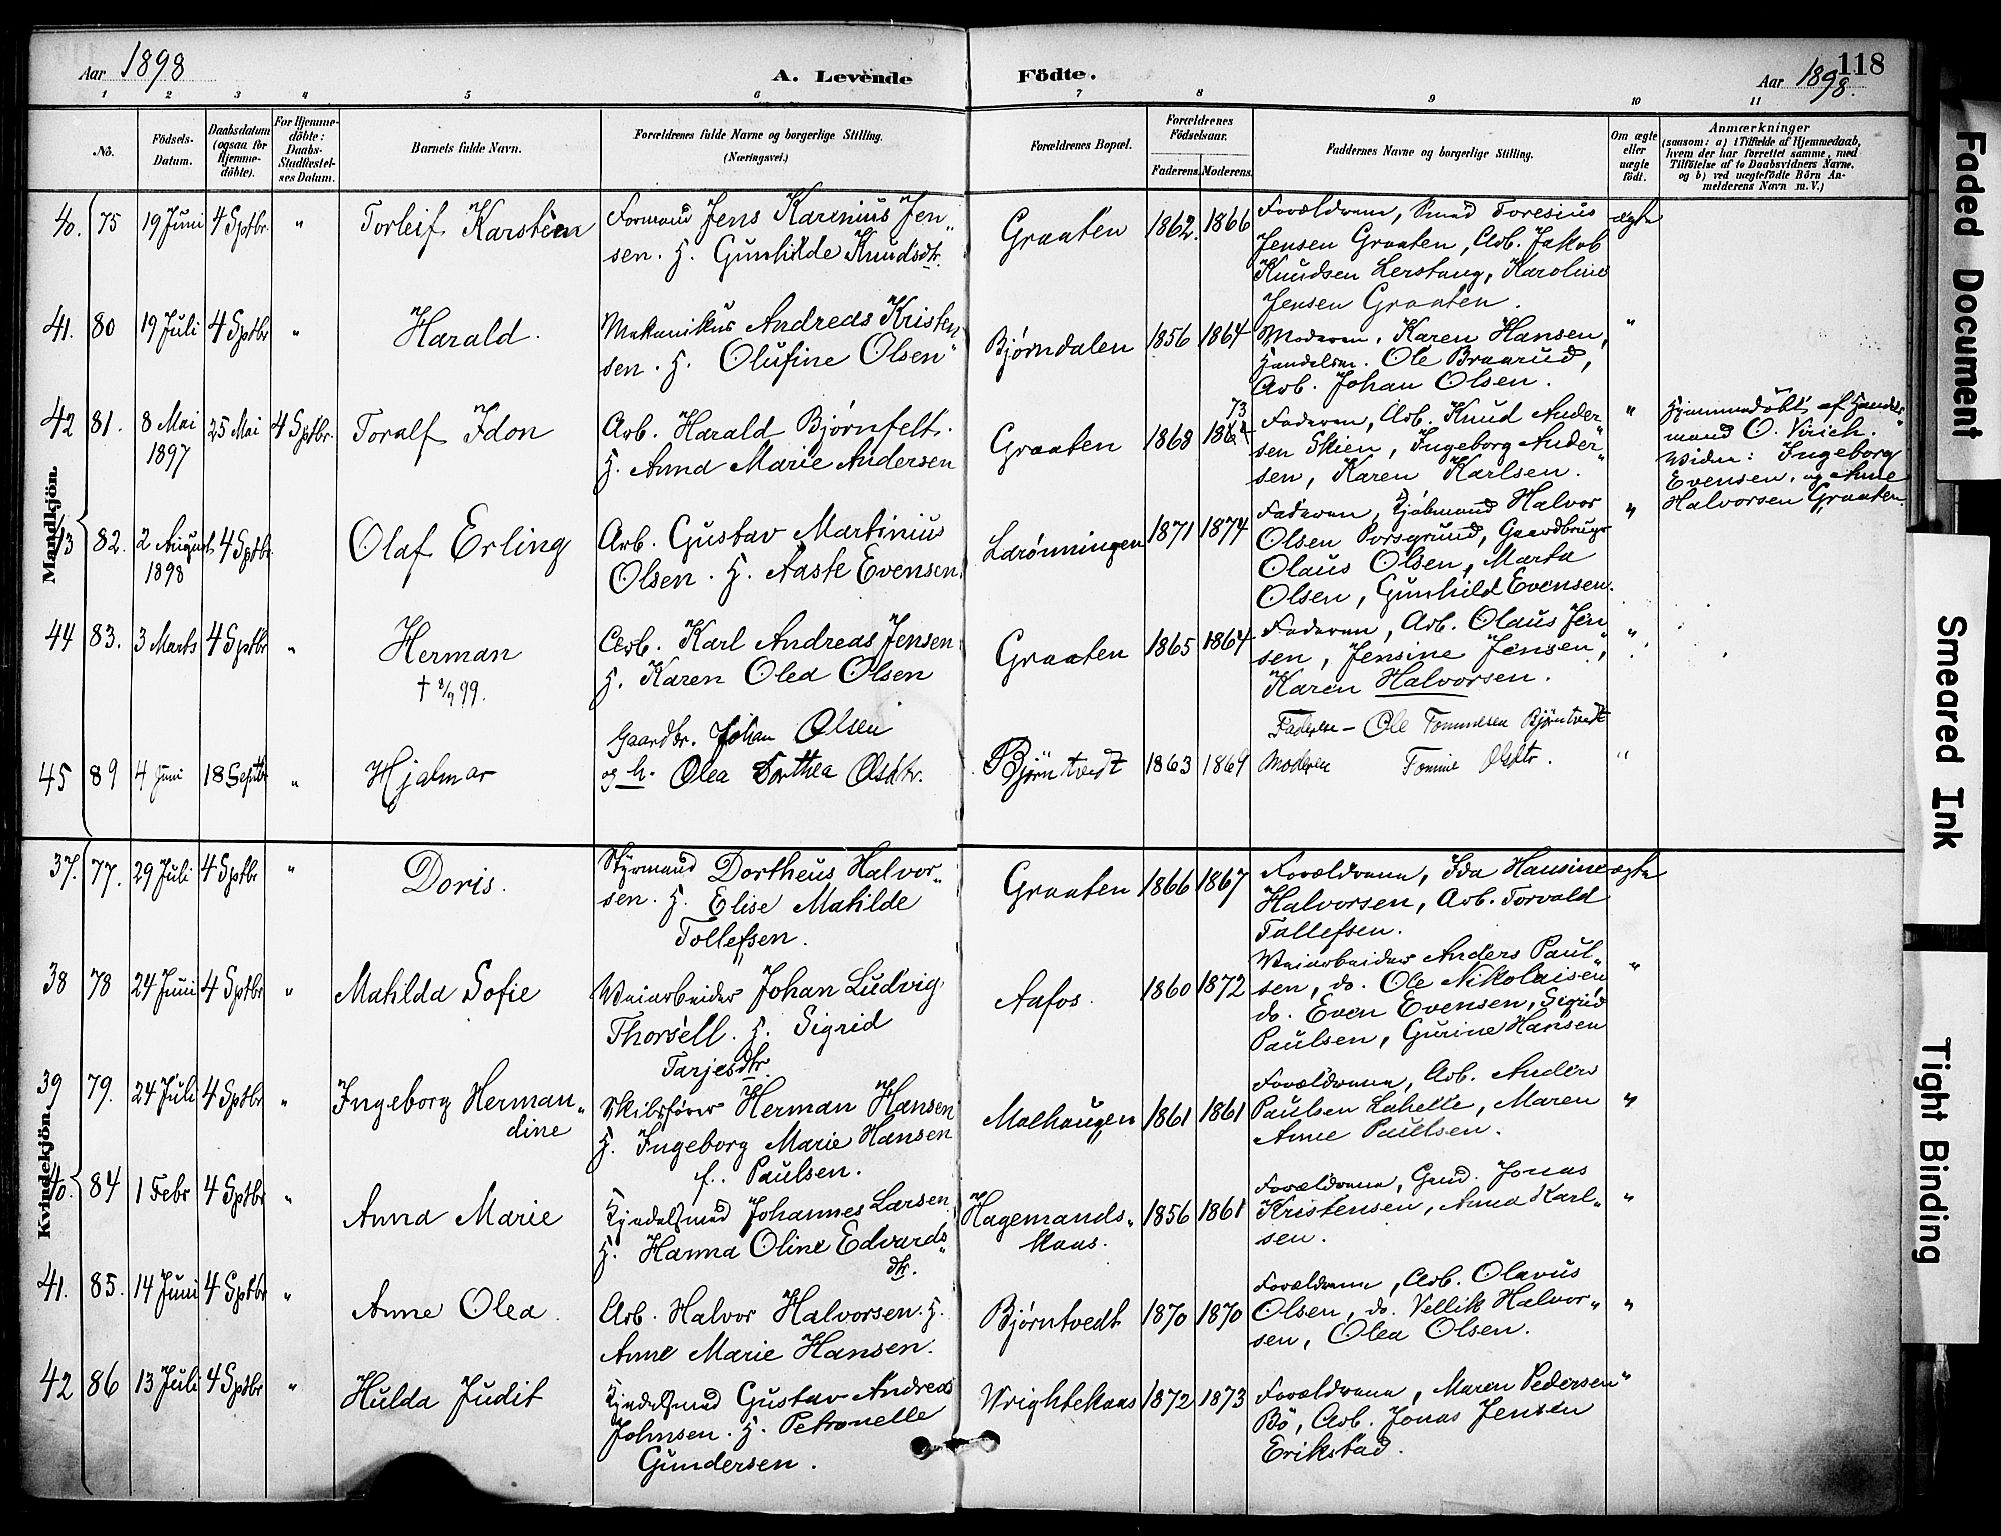 Aar 1898 A. Levende Födte. Aar 1898. 118
1 2 3 4 5 6 7 8 9 10 11
No. Fødsels-Datum. Daabsdatum (ogsaa for Hjemmedöbte). For Hjemmedöbte: Daabs-Stadfæstelses Datum. Barnets fulde Navn. Forældrenes fulde Navne og borgerlige Stilling. (Næringsvei.) Forældrenes Bopæl. Forældrenes Födselsaar. Faderens. Moderens. Faddernes Navne og borgerlige Stilling. Om ægte eller uægte födt. Anmærkninger (saasom: a) i Tilfælde af Hjemmedaab, hvem der har forrettet samme, med Tilföielse af to Daabsvidners Navne. og b) ved uægtefödte Börn Anmelderens Navn m. V.)
Mandkjön.
40. 75 19 Juni 4 Sptbr. " Torleif Karsten Formand Jens Karenius Jen„ Graaten 1862. 1866 Forældrene, Smed Toresius ægte
sen. H. Gunhilde Knudsdtr. Jensen Graaten, Arb. Jakob
Knudsen Lerstang, Karoline
Jensen Graaten.
41. 80 19 Juli 4 Sptbr " Harald. Mekanikus Andreas Kristen Bjørndalen 1856 1864 Moderen, Karen Hansen, "
sen. H. Olufine Olsen Handelsm. Ole Braarud,
Arb. Johan Olsen.
42 81. 8 Mai 1897 25 Mai 4 Sptbr. Toralf Idon Arb. Harald Bjørnfelt. Graaten 1868 73 Faderen, Arb. Knud Ander„ " Hjemmedøbt af Handels„
H. Anna Marie Andersen sen Skien, Ingeborg Ander„ mand O. Virich.
sen, Karen Karlsen. Vidner: Ingeborg
Evensen, og Anne
Halvorsen Graaten
43 82. 2 August 1898 4 Sptbr. Olaf Erling Arb. Gustav Martinius Larønningen 1871 1874 Faderen, Kjøbmand Halvor "
Olsen. H. Aaste Evensen. Olsen Porsgrund, Gaardbruger
Olaus Olsen, Marta
Olsen, Gunhild Evensen.
44 83. 3 Marts 4 Sptbr " Herman Arb. Karl Andreas Jensen Graaten 1865 1864 Faderen, Arb. Olaus Jen "
† 2/9 99. H. Karen Olea Olsen sen, Jensine Jensen,
Karen Halvorsen.
45 89 4 Juni 18 Septbr " Hjalmar Gaardbr. Johan Olsen Bjørntvedt 1863 1869 Faderen – Ole Tommesen Bjørntvedt "
og h. Olea Dorthea Olsdtr. Moderen Tomine Olsdtr.
Kvindekjön.
37. 77. 29 Juli 4 Sptbr " Doris. Styrmand Dortheus Halvor„ Graaten 1866 1867 Forældrene, Ida Hansine ægte
sen. H. Elise Mathilde Halvorsen, Arb. Torvald
Tollefsen. Tallefsen.
38 78 24 Juni 4 Sptbr " Mathilda Sofie Veiarbeider Johan Ludvig Aafos. 1860 1872 Veiarbeider Anders Paul„ "
Thorsell. H. Sigrid sen, do. Ole Nikolaisen
Tarjesdtr. do. Even Evensen, Sigrid
Paulsen, Gurine Hansen
39 79. 24 Juli 4 Sptbr " Ingeborg Herman„ Skibsfører Herman Hansen Maelhaugen 1861 1861 Forældrene, Arb. Anders "
dine H. Ingeborg Marie Hansen Paulsen Lahelle, Maren
f. Paulsen. Anne Paulsen.
40. 84 1 Febr 4 Sptbr " Anna Marie Kjedelsmed Johannes Larsen Hagemands„ 1856 1861 Forældrene, Gmd. Jonas "
H. Hanna Oline Edvards„ kaas. Kristensen, Anna Karl„
dtr. sen.
41. 85. 14 Juni 4 Sptbr " Anne Olea. Arb. Halvor Halvorsen. H. Bjørntvedt 1870 1870 Forældrene, Arb. Olavus "
Anne Marie Hansen. Olsen, do. Vellik Halvor„
sen, Olea Olsen.
42 86 13 Juli 4 Sptbr " Hulda Judit Kjedelsmed Gustav Andreas Wrightekaas 1872 1873 Forældrene, Maren Pedersen "
Johnsen. H. Petronelle Bø, Arb. Jonas Jensen
Gundersen. Erikstad.
Faded Document
Smeared Ink
Tight Binding